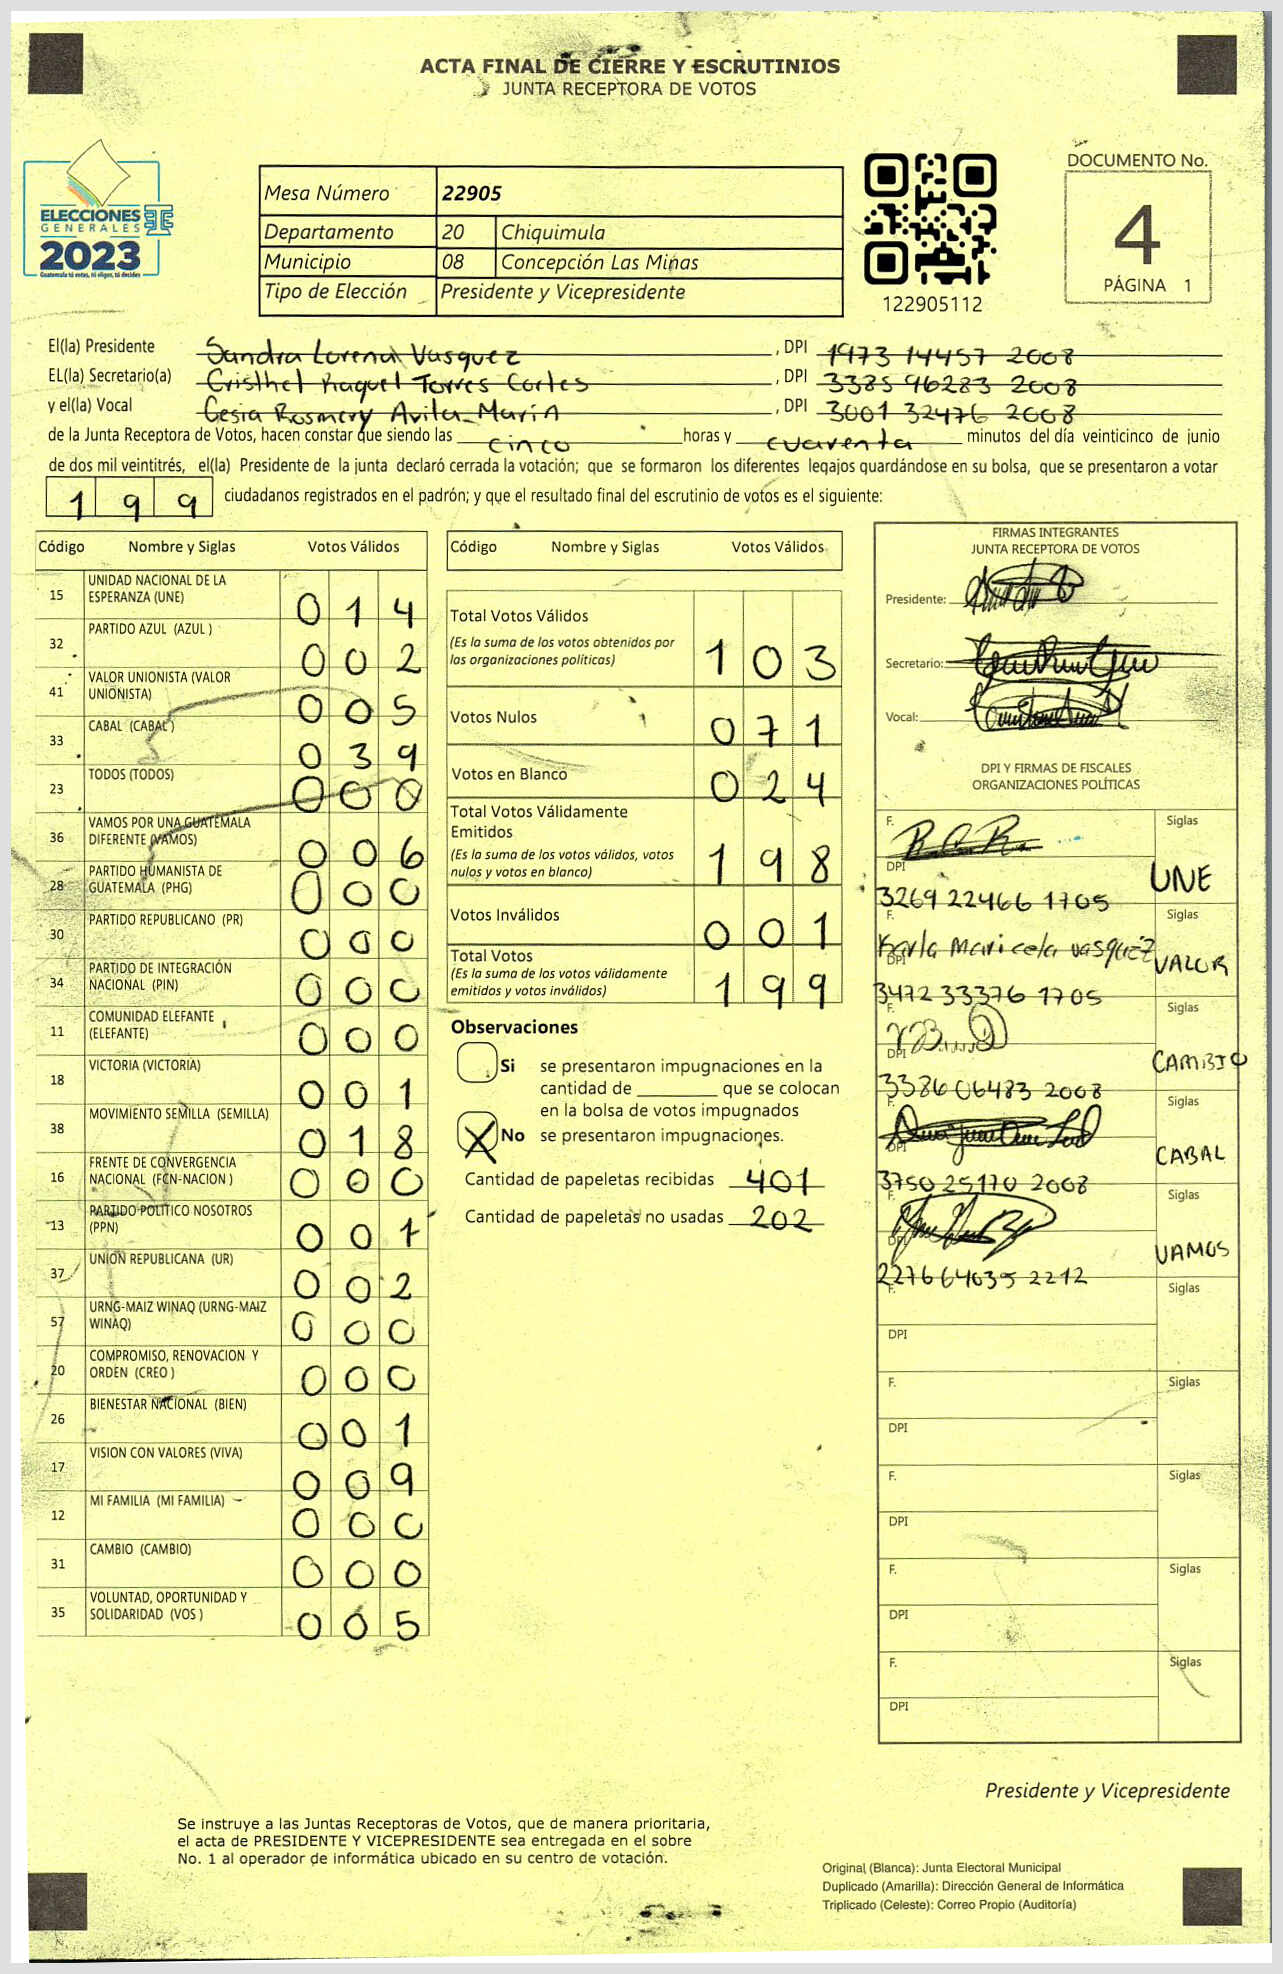 ACTA FINAL DE CIERRE Y ESCRUTINIOS
JUNTA RECEPTORA DE VOTOS
ELECCIONES
GENERALES
2023
Guatemala tú votas, tú eliges, tú decides
Mesa Número 22905
Departamento 20 Chiquimula
Municipio 08 Concepción Las Minas
Tipo de Elección Presidente y Vicepresidente
122905112
DOCUMENTO No.
4
PÁGINA 1
El(la) Presidente Sandra Lorena Vasquez, DPI 1973 14457 2008
EL(la) Secretario(a) Cristhel Raquel Torres Cortes, DPI 3385 96283 2008
y el(la) Vocal Cesia Rosmery Avila Marín, DPI 3001 32476 2008
de la Junta Receptora de Votos, hacen constar que siendo las cinco horas y cuarenta minutos del día veinticinco de junio
de dos mil veintitrés, el(la) Presidente de la junta declaró cerrada la votación; que se formaron los diferentes legajos guardándose en su bolsa, que se presentaron a votar
199 ciudadanos registrados en el padrón; y que el resultado final del escrutinio de votos es el siguiente:
Código Nombre y Siglas Votos Válidos
15 UNIDAD NACIONAL DE LA ESPERANZA (UNE) 014
32 PARTIDO AZUL (AZUL ) 002
41 VALOR UNIONISTA (VALOR UNIONISTA) 005
33 CABAL (CABAL ) 039
23 TODOS (TODOS) 000
36 VAMOS POR UNA GUATEMALA DIFERENTE (VAMOS) 006
28 PARTIDO HUMANISTA DE GUATEMALA (PHG) 000
30 PARTIDO REPUBLICANO (PR) 000
34 PARTIDO DE INTEGRACIÓN NACIONAL (PIN) 000
11 COMUNIDAD ELEFANTE (ELEFANTE) 000
18 VICTORIA (VICTORIA) 001
38 MOVIMIENTO SEMILLA (SEMILLA) 018
16 FRENTE DE CONVERGENCIA NACIONAL (FCN-NACION ) 000
13 PARTIDO POLITICO NOSOTROS (PPN) 001
37 UNION REPUBLICANA (UR) 002
57 URNG-MAIZ WINAQ (URNG-MAIZ WINAQ) 000
20 COMPROMISO, RENOVACION Y ORDEN (CREO ) 000
26 BIENESTAR NACIONAL (BIEN) 001
17 VISION CON VALORES (VIVA) 009
12 MI FAMILIA (MI FAMILIA) 000
31 CAMBIO (CAMBIO) 000
35 VOLUNTAD, OPORTUNIDAD Y SOLIDARIDAD (VOS ) 005
Código Nombre y Siglas Votos Válidos
Total Votos Válidos
(Es la suma de los votos obtenidos por
las organizaciones políticas) 103
Votos Nulos 071
Votos en Blanco 024
Total Votos Válidamente
Emitidos
(Es la suma de los votos válidos, votos
nulos y votos en blanco) 198
Votos Inválidos 001
Total Votos
(Es la suma de los votos válidamente
emitidos y votos inválidos) 199
Observaciones
Si se presentaron impugnaciones en la
cantidad de ________ que se colocan
en la bolsa de votos impugnados
X No se presentaron impugnaciones.
Cantidad de papeletas recibidas 401
Cantidad de papeletas no usadas 202
FIRMAS INTEGRANTES
JUNTA RECEPTORA DE VOTOS
Presidente:
Secretario:
Vocal:
DPI Y FIRMAS DE FISCALES
ORGANIZACIONES POLÍTICAS
F. Siglas
DPI UNE
3269 22466 1705
F. Siglas
Karla Maricela vasquéz
DPI VALOR
3472 33376 1705
F. Siglas
DPI CAMBIO
3386 06483 2008
F. Siglas
DPI CABAL
3750 25170 2008
F. Siglas
DPI VAMOS
2276 64039 2212
F. Siglas
DPI
F. Siglas
DPI
F. Siglas
DPI
F. Siglas
DPI
F. Siglas
DPI
Presidente y Vicepresidente
Se instruye a las Juntas Receptoras de Votos, que de manera prioritaria,
el acta de PRESIDENTE Y VICEPRESIDENTE sea entregada en el sobre
No. 1 al operador de informática ubicado en su centro de votación.
Original (Blanca): Junta Electoral Municipal
Duplicado (Amarilla): Dirección General de Informática
Triplicado (Celeste): Correo Propio (Auditoría)